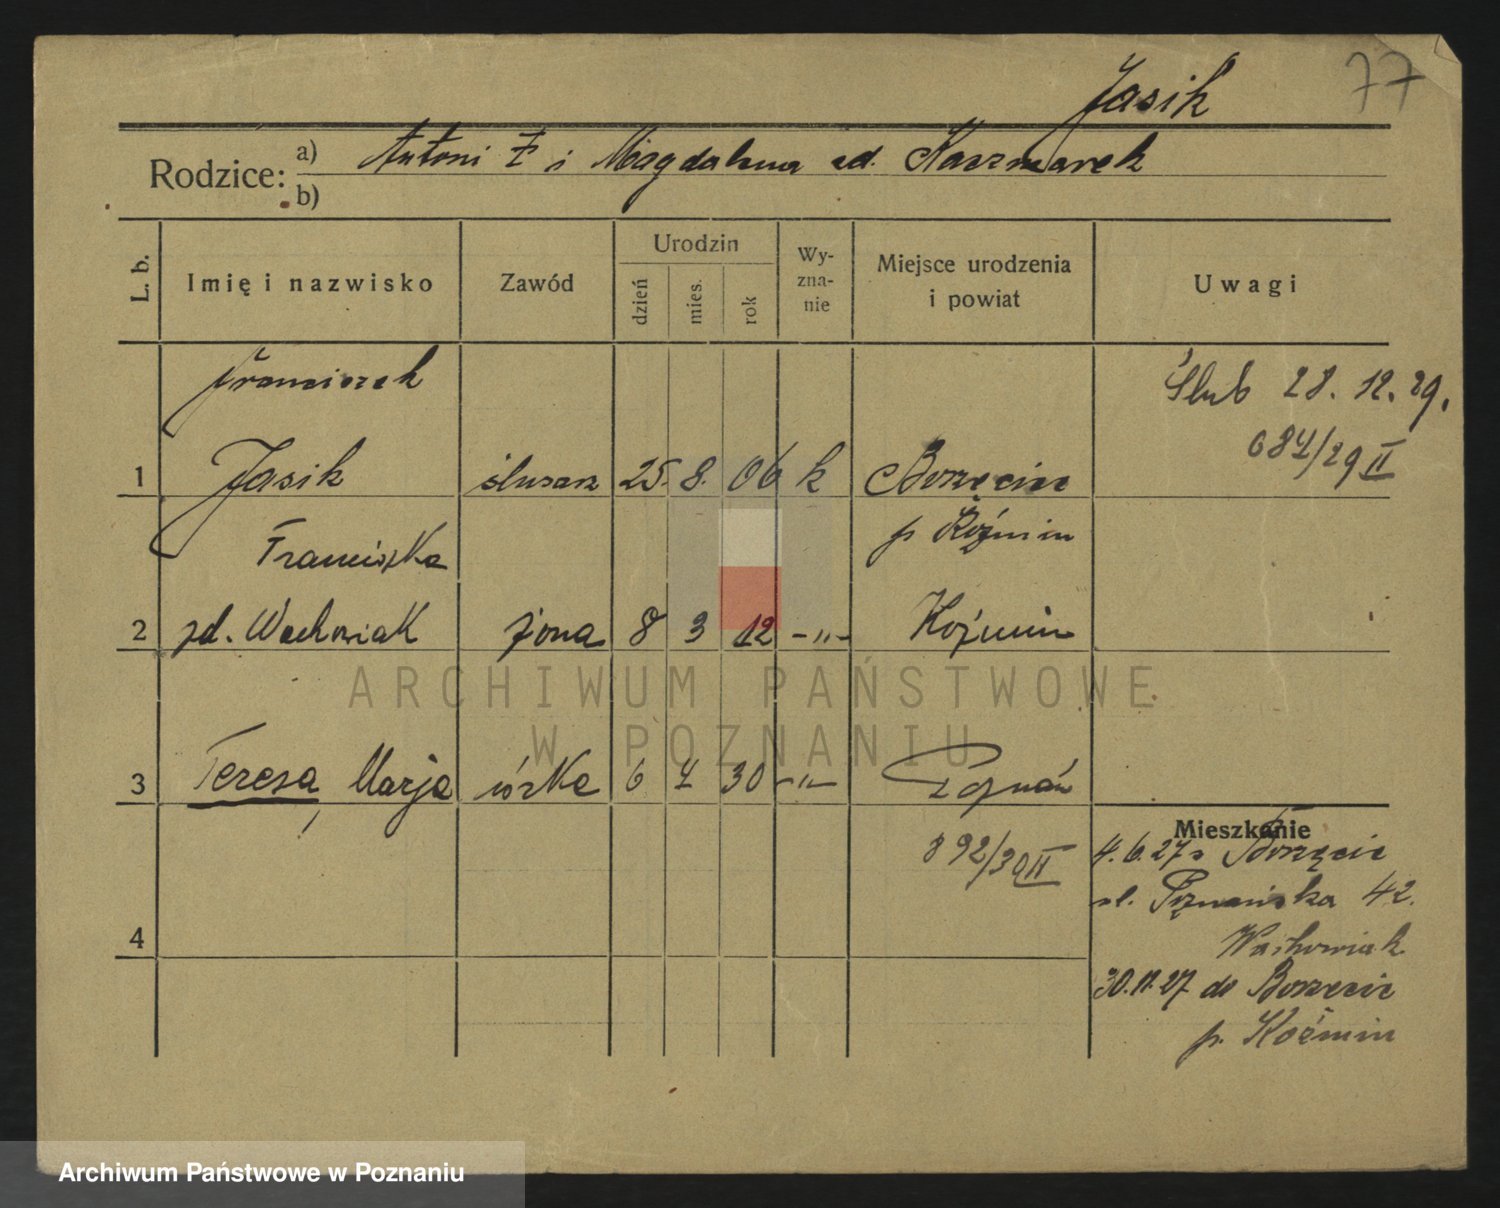 Jasik
77
Rodzice: a) Antoni i Magdalena zd. Kaczmarek
b)
L. b. Imię i nazwisko Zawód Urodzin dzień mies. rok Wy-zna-nie Miejsce urodzenia i powiat Uwagi
Franciszek Ślub 28. 12. 29.
684/29 II
1 Jasik ślusarz 25. 8. 06 k Borzęcice
p. Koźmin
Franciszka
2 zd. Wachowiak żona 8 3 12 -"- Koźmin
3 Teresa, Marja córka 6 7 30 -"- Poznań
892/30 II
Mieszkanie
4.6.27 z Borzęcic
ul. Poznańska 42.
Wachowiak
4
30.11.27 do Borzęcic
p. Koźmin
ARCHIWUM PAŃSTWOWE
W POZNANIU
Archiwum Państwowe w Poznaniu